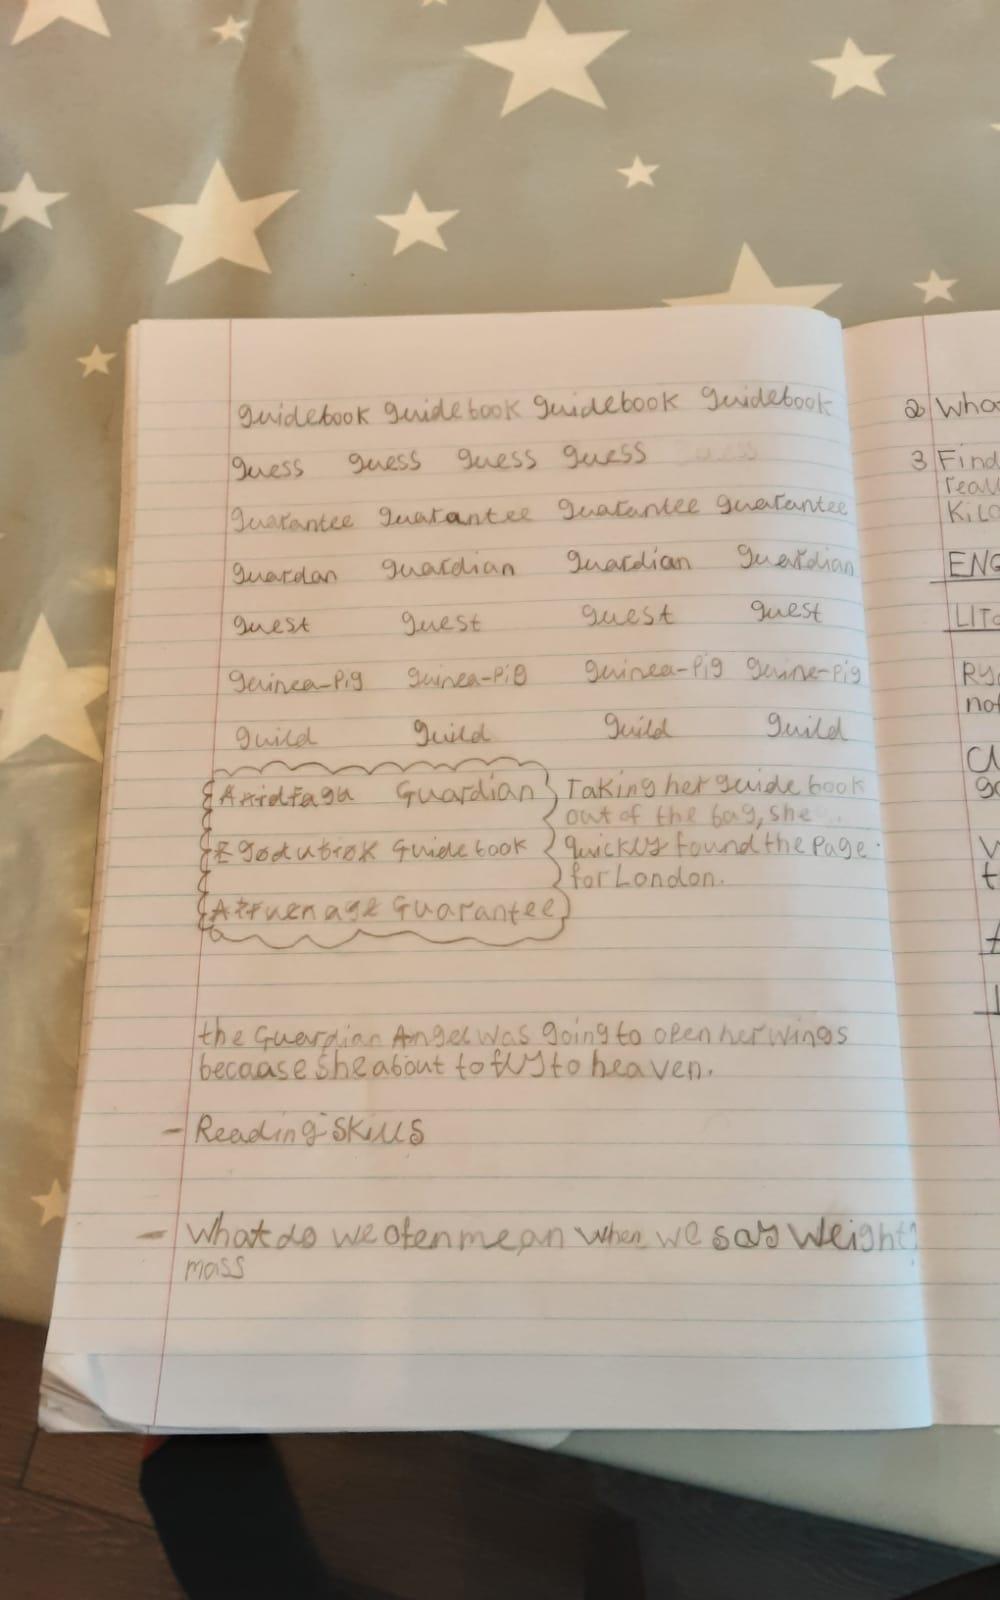 guidebook guidebook guidebook guidebook
guess guess guess guess guess
guarantee guarantee guarantee guarantee
guardan guardian guardian guardian
guest guest guest guest
guinea-pig guinea-pig guinea-pig guine-pig
guild guild guild guild
Guardian
Guidebook
Guarantee
Taking her guide book
out of the bag, she
quickly found the page
for London.
the Guardian Angel was going to open her wings
because she about to fly to heaven.
- Reading skills
- What do we ofen mean when we say weight?
mass
2
3 Find
ENG
not